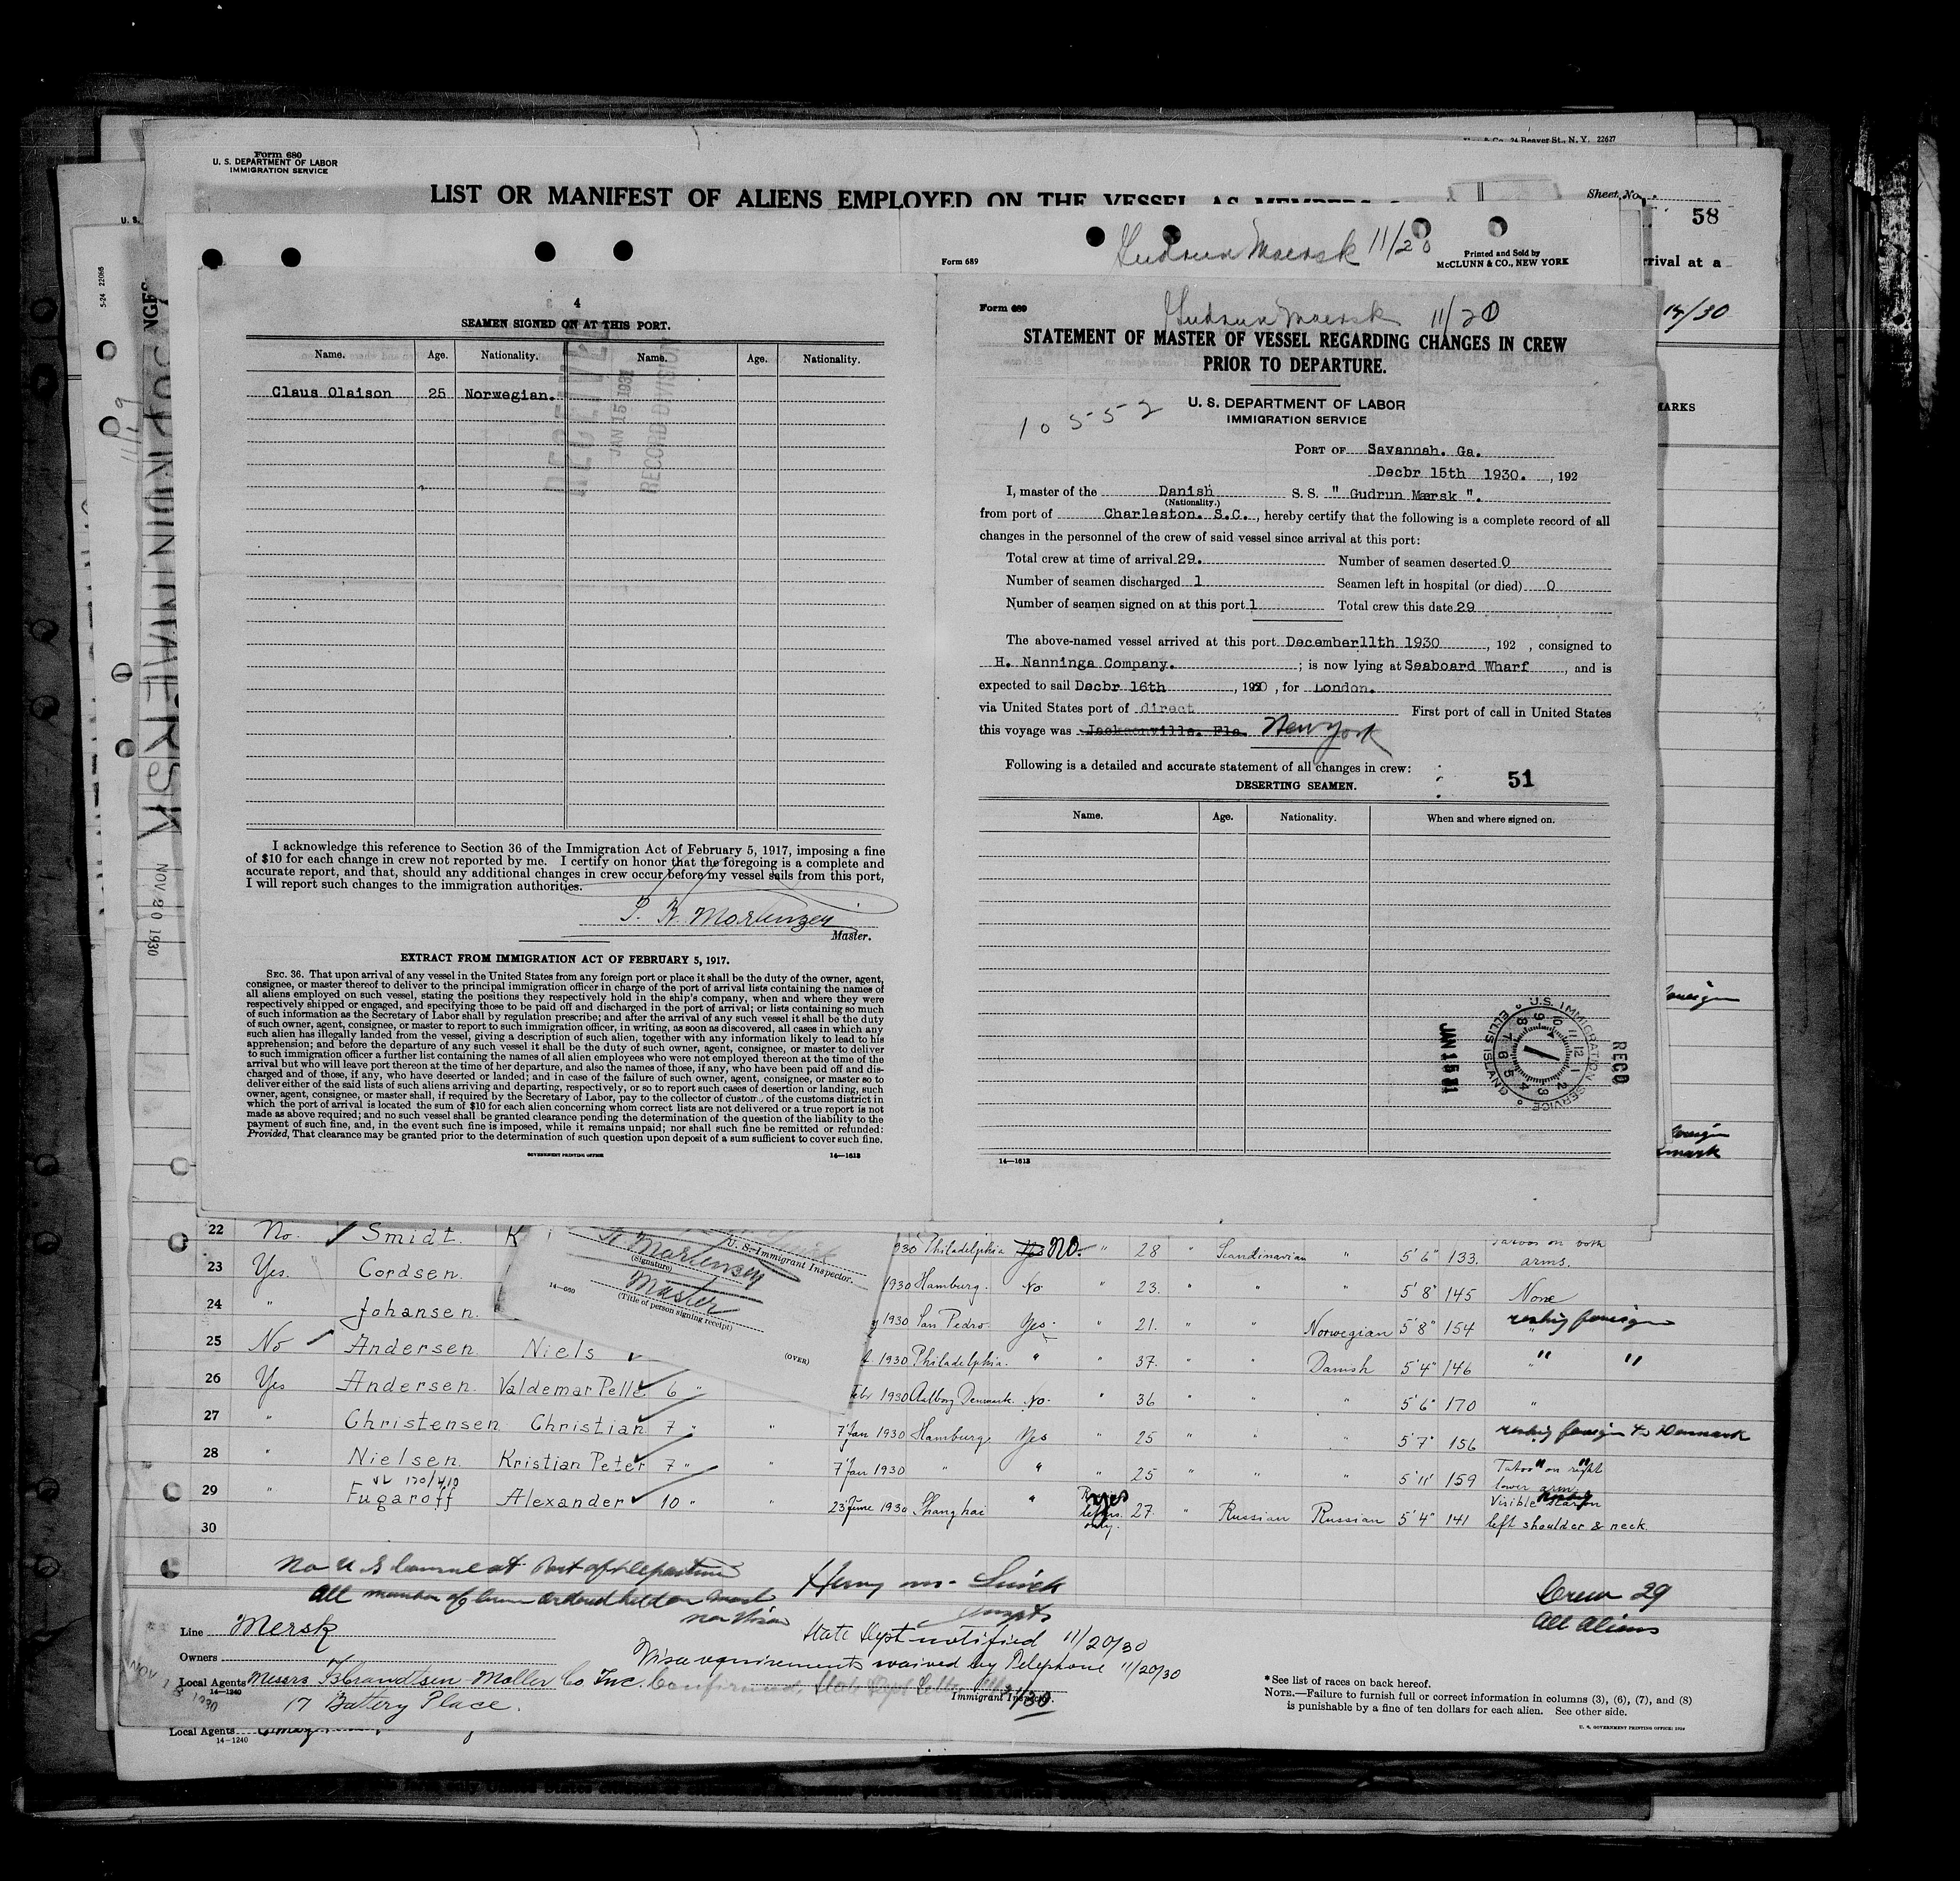 Form 680
U. S. DEPARTMENT OF LABOR
IMMIGRATION SERVICE
24 Beaver St., N. Y. 22627
LIST OR MANIFEST OF ALIENS EMPLOYED ON THE VESSEL AS MEMBERS
Sheet No.
58
rrival at a
MARKS
5-24 22066
NOV 20 1930
Form 689
Gudrun Maersk 11/20
Printed and Sold by
McCLUNN & CO., NEW YORK
4
SEAMEN SIGNED ON AT THIS PORT.
Name. Age. Nationality. Name. Age. Nationality.
Claus Olaison 25 Norwegian.
RECEIVED
JAN 15 1931
RECORD DIVISION
I acknowledge this reference to Section 36 of the Immigration Act of February 5, 1917, imposing a fine
of $10 for each change in crew not reported by me. I certify on honor that the foregoing is a complete and
accurate report, and that, should any additional changes in crew occur before my vessel sails from this port,
I will report such changes to the immigration authorities.
Master.
EXTRACT FROM IMMIGRATION ACT OF FEBRUARY 5, 1917.
SEC. 36. That upon arrival of any vessel in the United States from any foreign port or place it shall be the duty of the owner, agent,
consignee, or master thereof to deliver to the principal immigration officer in charge of the port of arrival lists containing the names of
all aliens employed on such vessel, stating the positions they respectively hold in the ship's company, when and where they were
respectively shipped or engaged, and specifying those to be paid off and discharged in the port of arrival; or lists containing so much
of such information as the Secretary of Labor shall by regulation prescribe; and after the arrival of any such vessel it shall be the duty
of such owner, agent, consignee, or master to report to such immigration officer, in writing, as soon as discovered, all cases in which any
such alien has illegally landed from the vessel, giving a description of such alien, together with any information likely to lead to his
apprehension; and before the departure of any such vessel it shall be the duty of such owner, agent, consignee, or master to deliver
to such immigration officer a further list containing the names of all alien employees who were not employed thereon at the time of the
arrival but who will leave port thereon at the time of her departure, and also the names of those, if any, who have been paid off and dis-
charged and of those, if any, who have deserted or landed; and in case of the failure of such owner, agent, consignee, or master so to
deliver either of the said lists of such aliens arriving and departing, respectively, or so to report such cases of desertion or landing, such
owner, agent, consignee, or master shall, if required by the Secretary of Labor, pay to the collector of customs of the customs district in
which the port of arrival is located the sum of $10 for each alien concerning whom correct lists are not delivered or a true report is not
made as above required; and no such vessel shall be granted clearance pending the determination of the question of the liability to the
payment of such fine, and, in the event such fine is imposed, while it remains unpaid; nor shall such fine be remitted or refunded:
Provided, That clearance may be granted prior to the determination of such question upon deposit of a sum sufficient to cover such fine.
GOVERNMENT PRINTING OFFICE 14—1613
Form 689
Gudrun Maersk 11/20
STATEMENT OF MASTER OF VESSEL REGARDING CHANGES IN CREW
PRIOR TO DEPARTURE.
10552
U. S. DEPARTMENT OF LABOR
IMMIGRATION SERVICE
PORT OF Savannah. Ga.
Decbr 15th 1930. , 192
I, master of the Danish S. S. " Gudrun Mærsk ".
(Nationality.)
from port of Charleston. S.C. , hereby certify that the following is a complete record of all
changes in the personnel of the crew of said vessel since arrival at this port:
Total crew at time of arrival 29. Number of seamen deserted 0
Number of seamen discharged 1 Seamen left in hospital (or died) 0
Number of seamen signed on at this port 1 Total crew this date 29
The above-named vessel arrived at this port December 11th 1930 , 192 , consigned to
H. Nanninga Company. ; is now lying at Seaboard Wharf , and is
expected to sail Decbr 16th , 1930 , for London.
via United States port of direct First port of call in United States
this voyage was Jacksonville. Fla New York
Following is a detailed and accurate statement of all changes in crew:
51
DESERTING SEAMEN.
Name. Age. Nationality. When and where signed on.
U.S. IMMIGRATION SERVICE ELLIS ISLAND
JAN 15 31
RECD
14—1613
22 No. Smidt. K 930 Philadelphia Yes No. " 28 " Scandinavian " 5'6" 133. Tatoos on both arms.
23 Yes. Cordsen. 1930 Hamburg. No " 23. " " " 5'8" 145 None
24 " Johansen. 1930 San Pedro. Yes. " 21. " " Norwegian 5'8" 154
25 No Andersen. Niels 1930 Philadelphia. " " 37. " " Danish 5'4" 146 " "
26 Yes Andersen. Valdemar Pelle 6 " Febr 1930 Aalborg Denmark. No. " 36 " " " 5'6" 170 "
27 " Christensen Christian 7 " " 7 Jan 1930 Hamburg. Yes " 25 " " " 5'7" 156 reship foreign to Denmark
28 " Nielsen. Kristian Peter 7 " " 7 Jan 1930 " " " 25 " " " 5'11" 159 Tatoo on right lower arm.
29 " Fugaroff Alexander 10 " " 23 June 1930 Shanghai " yes 27. " Russian Russian 5'4" 141 Visible scar on left shoulder & neck.
30
U. S. Immigrant Inspector.
(Signature)
Master
(Title of person signing receipt)
(OVER)
Crew 29
All Aliens
Line Mersk
State Dept notified 11/20/30
Owners
Visa requirements waived by Telephone 11/20/30
Local Agents Messrs Moller Co Inc.
14—1240
Immigrant Inspector.
17 Battery Place.
* See list of races on back hereof.
NOTE.—Failure to furnish full or correct information in columns (3), (6), (7), and (8)
is punishable by a fine of ten dollars for each alien. See other side.
Local Agents
14—1240